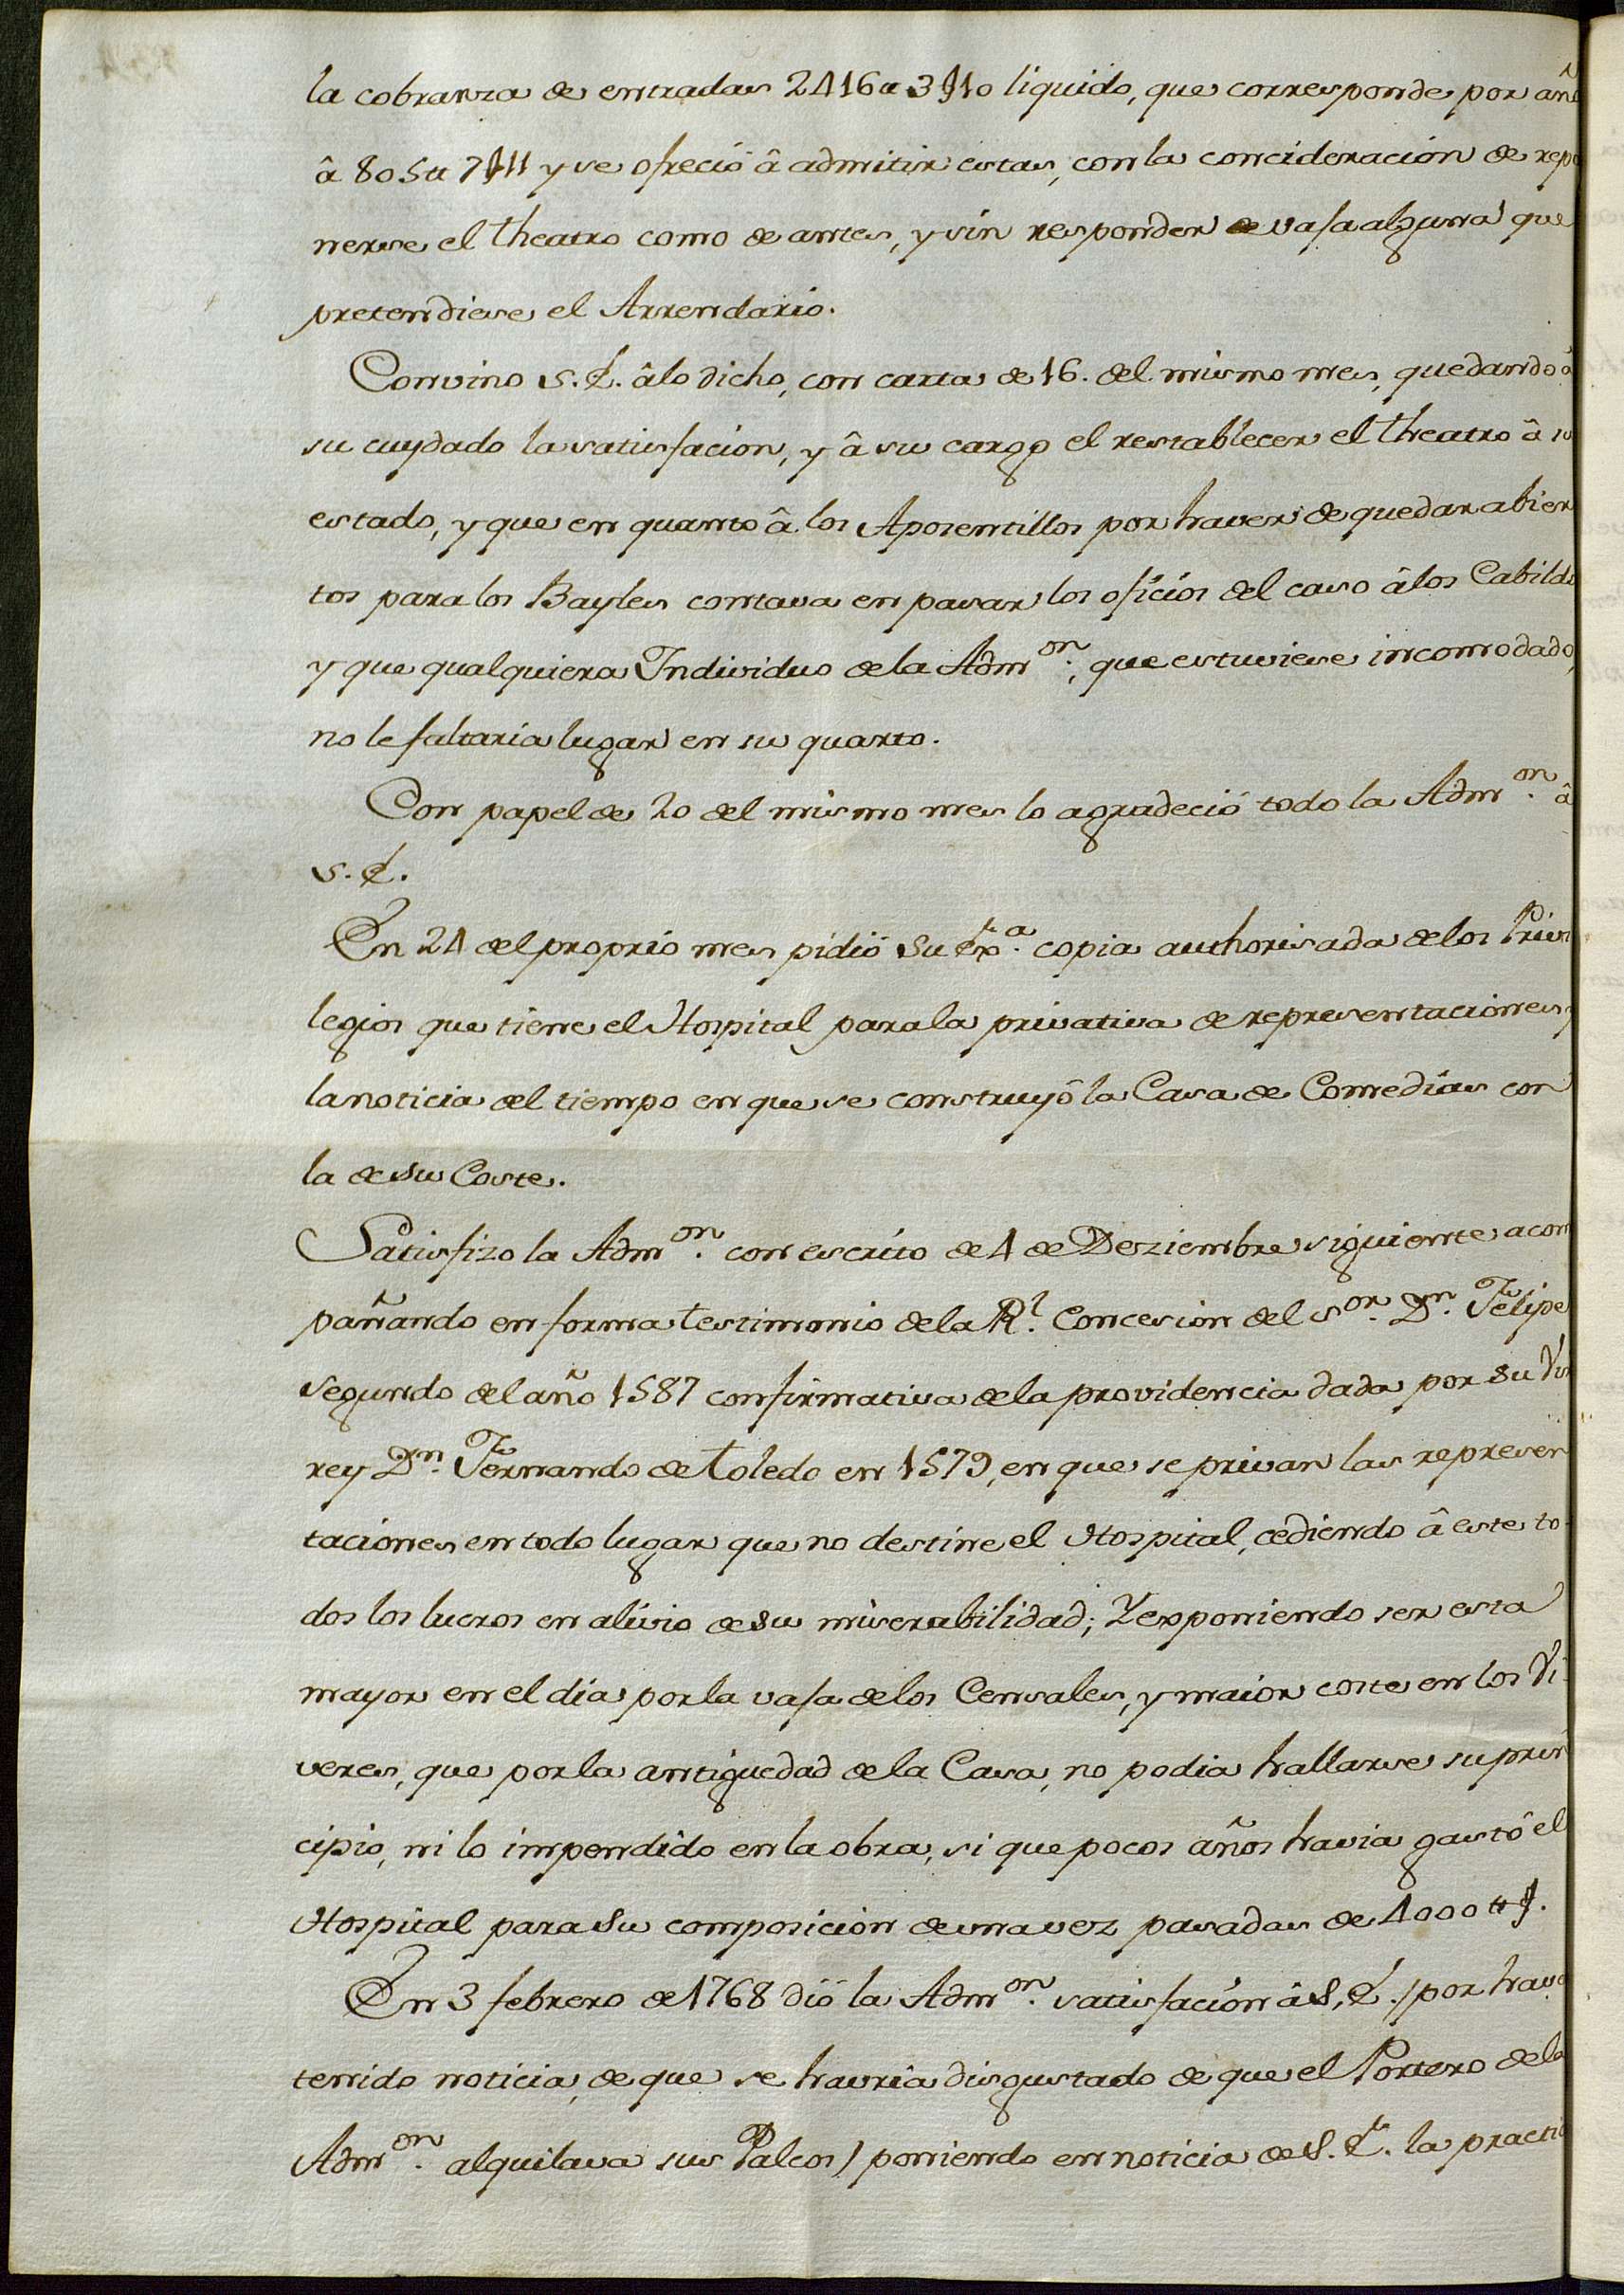 la cobranza de entradas 2416 ₶ 3 ß 10 liquido, que corresponde por añ
â 805 ₶ 7 ß 11 y se ofreciô â admitir estas, con la concideración de repo
nerse el theatro como de antes, y sin responder de vaja alguna que
pretendiese el Arrendario.
Convino S. E. âlo dicho, con carta de 16. del mismo mes, quedando â
su cuydado la satisfacion, y â su cargo el restablecer el theatro â su
estado, y que en quanto â los Aposentillos por haver de quedar abier
tos para los Bayles contava en pasar los oficios del caso âlos Cabildo
y que qualquiera Individuo dela Adm.on, que estuviese incomodado,
no le faltaria lugar en su quarto.
Con papel de 20 del mismo mes lo agradeció todo la Adm.on â
S. E.
En 24 del proprio mes pidiô Su Ex.a copia authorisada delos Privi
legios que tiene el Hospital parala privativa de representaciones y
lanoticia del tiempo en que se construyô la Casa de Comedias con
la de su Coste.
Satisfizo la Adm.on con escrito de 4 de Deziembre siguiente acom
pañando en forma testimonio dela R.l Concesion del S.or D.n Felipe
segundo del año 1587 confirmativa dela providencia dada por su Vir
rey D.n Fernando de Toledo en 1579, en que se privan las represen
taciones en todo lugar que no destine el Hospital, cediendo â este to-
dos los lucros en alivio de su miserabilidad; Y exponiendo ser esta
mayor en el dia por la vaja delos Censales, y maior coste en los Vi-
veres, que por la antiguedad dela Casa, no podia hallarse su prin
cipio, ni lo impendido en la obra, si que pocos años havia gastô el
Hospital para su composicion de una vez pasadas de 4000 ₶ ß.
En 3 febrero de 1768 diô la Adm.on satisfación â S. E. / por have
tenido noticia, de que se havria disgustado de que el Portero dela
Adm.on alquilava sus Palcos / poniendo en noticia de S. E. la practic